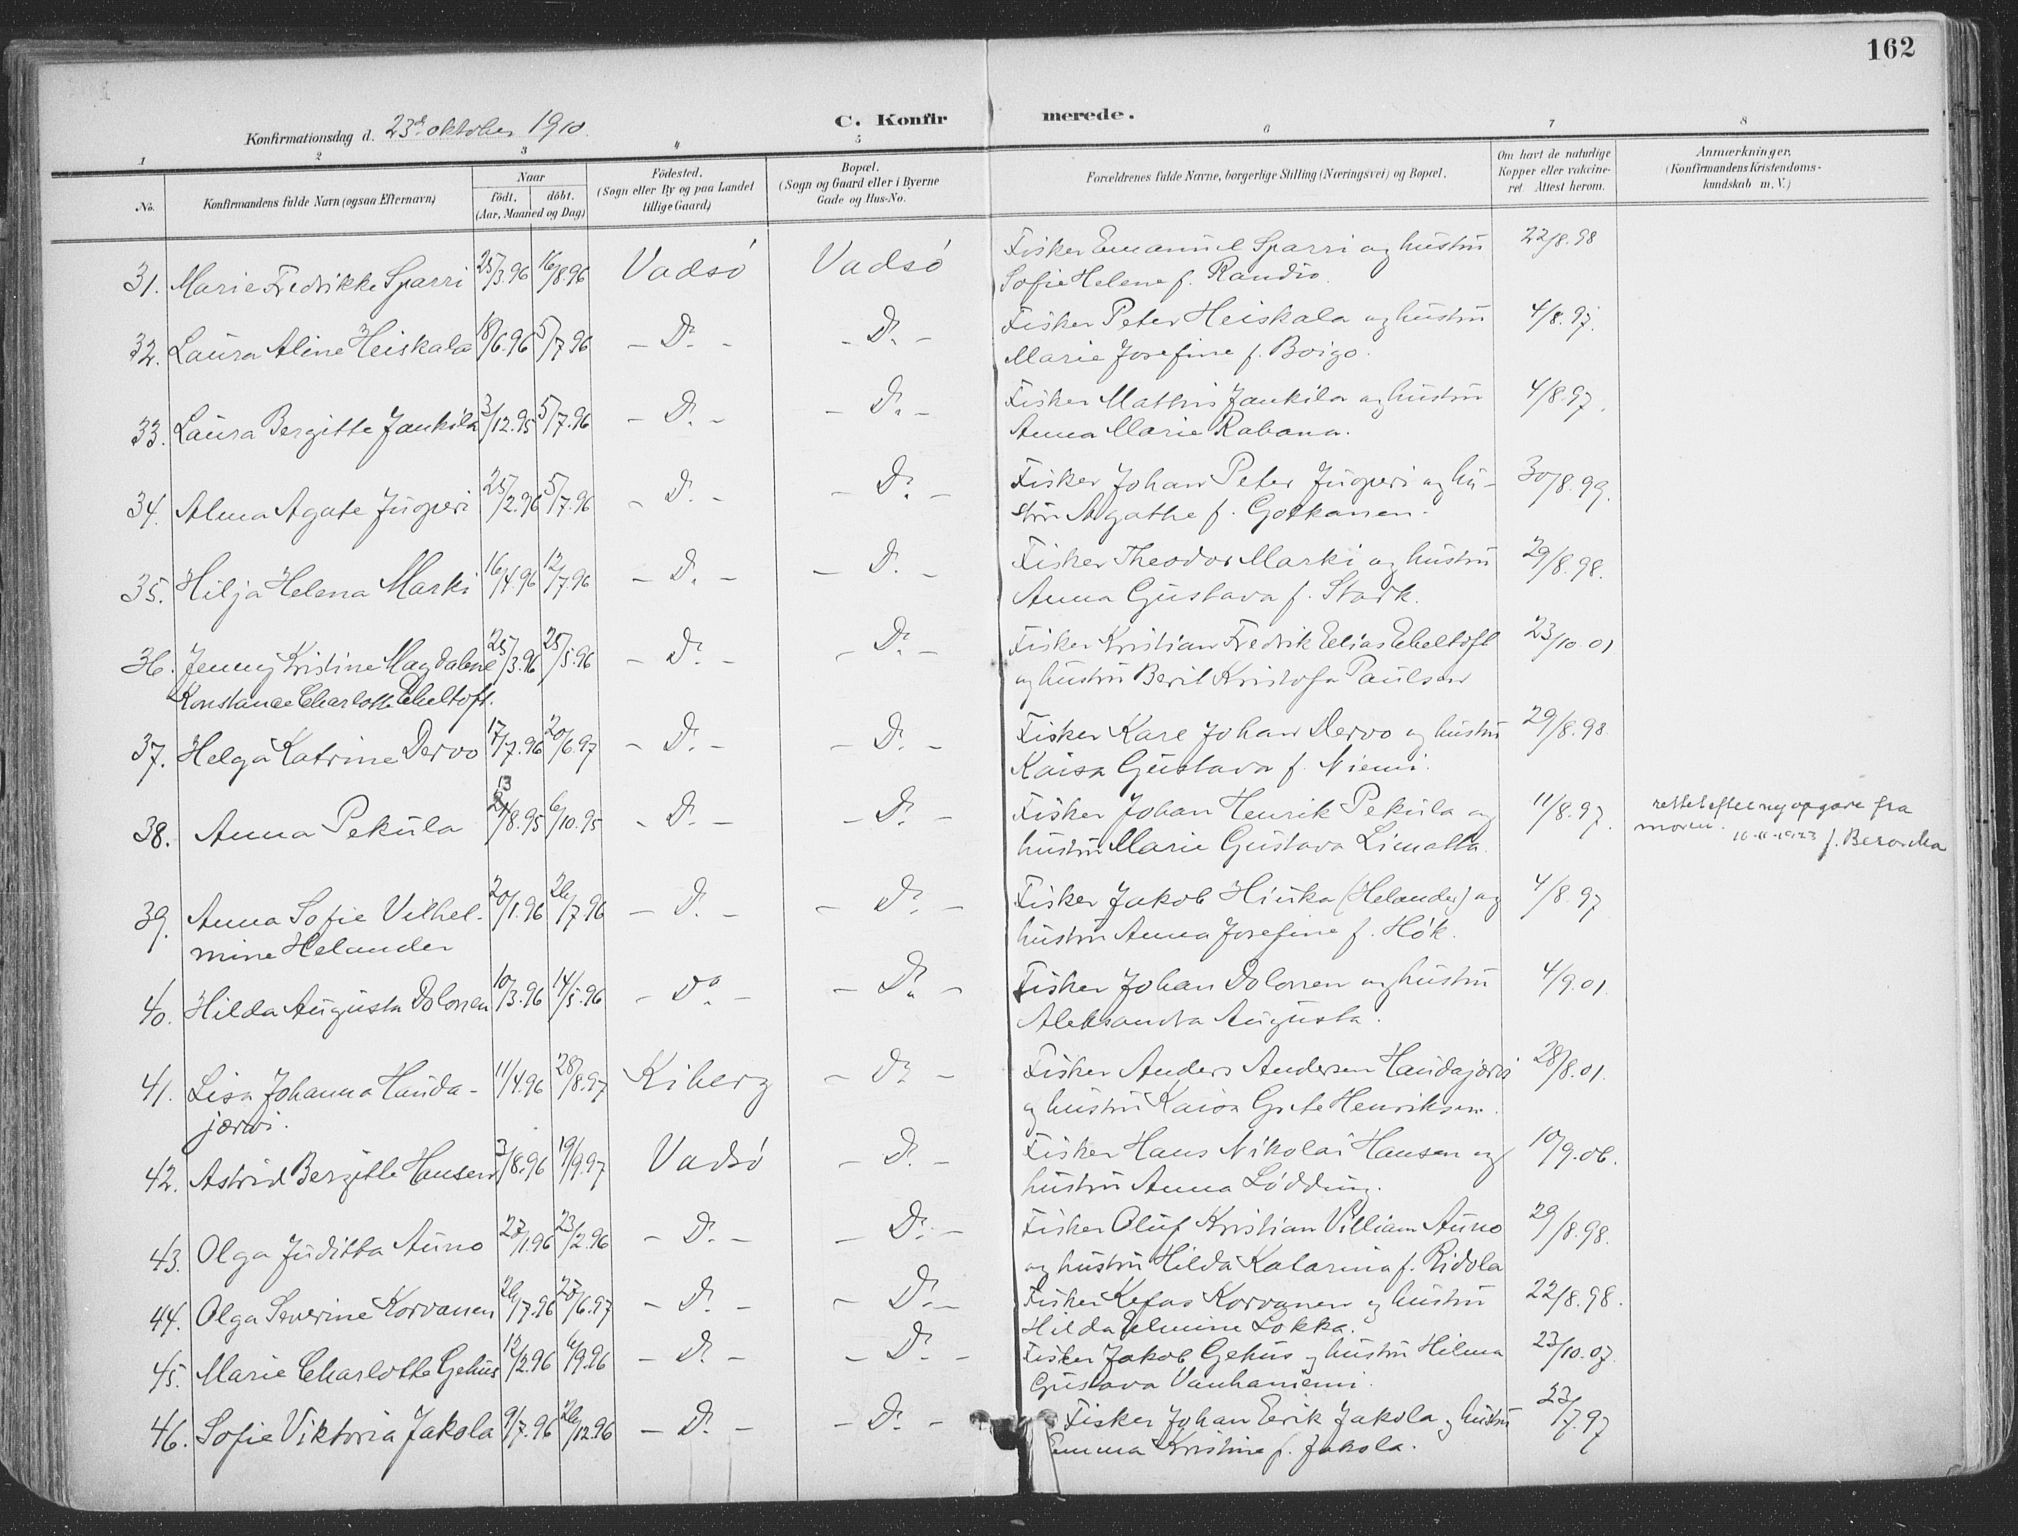 162
Konfirmationsdag d. 23de oktober 1910.
C. Konfirmerede.
1 2 3 4 5 6 7 8
No. Konfirmandens fulde Navn (ogsaa Efternavn) Naar födt. döbt. (Aar, Maaned og Dag) Födested. (Sogn eller By og paa Landet tillige Gaard) Bopæl. (Sogn og Gaard eller i Byerne Gade og Hus-No. Forældrenes fulde Navne, borgerlige Stilling (Næringsvei) og Bopæl. Om havt de naturlige Kopper eller vakcineret Attest herom. Anmærkninger. (Konfirmandens Kristendomskundskab m. V.)
31. Marie Fredrikke Sparri 25/3.96 16/8.96 Vadsö Vadsö Fisker Emanuel Sparri og hustru 22/8.98
Sofie Helene f. Randio.
32. Laura Aline Heiskala 18/6.96 5/7.96 - Do. - - Do. - Fisker Peter Heiskala og hustru 4/8.97.
Marie Josefine f. Boigo.
33. Laura Bergitte Jankila 3/12.95 5/7.96 - Do. - - Do. - Fisker Mathis Jankila og hustru 4/8.97.
Anna Marie Rabana.
34. Alma Agate Juoperi 25/2.96 5/7.96 - Do. - - Do. - Fisker Johan Peter Juoperi og hu- 30/8.99.
stru Agathe f. Gotkanen.
35. Hilja Helena Marki 16/4.96 12/7.96 - Do. - - Do. - Fisker Theodor Marki og hustru 29/8.98.
Anna Gustava f. Stark.
36. Jenny Kristine Magdalene 25/3.96 25/5.96 - Do. - - Do. - Fisker Kristian Fredrik Elias Ebeltoft 23/10.01
Konstance Charlotte Ebeltoft. og hustru Berit Kristofa Paulsen
37. Helga Katrine Dervo 17/7.96 20/6.97 - Do. - - Do. - Fisker Karl Johan Dervo og hustru 29/8.98
Kaisa Gustava f. Niemi.
38. Anna Pekula 13/8.95 6/10.95 - Do. - - Do. - Fisker Johan Henrik Pekula og 11/8.97. rettet efter ny opgave fra
hustru Marie Gustava Limatta. moren. 10-11-1923
39. Anna Sofie Vilhel- 20/1.96 26/7.96 - Do. - - Do. - Fisker Jakob Hiuka (Helander) og 4/8.97
mine Helander hustru Anna Josefine f. Hök.
40. Hilda Augusta Dolonen 10/3.96 14/5.96 - Do. - - Do. - Fisker Johan Dolonen og hustru 4/9.01.
Aleksandra Augusta.
41. Lisa Johanna Hauda- 11/4.96 28/8.97 Kiberg - Do. - Fisker Anders Andersen Haudajærvi 28/8.01.
jærvi. og hustru Kaisa Grete Henriksen.
42. Astrid Bergitte Hansen 3/8.96 19/9.97 Vadsö - Do. - Fisker Hans Nikolai Hansen og 10/9.06.
hustru Anna Lödding.
43. Olga Juditta Auno 27/1.96 23/2.96 - Do. - - Do. - Fisker Oluf Kristian Villiam Auno 29/8.98.
og hustru Hilda Katarina f. Ridola
44. Olga Severine Korvanen 26/7.96 20/6.97 - Do. - - Do. - Fisker Kefas Korvanen og hustru 22/8.98.
Hilda Elmine Lokka.
45. Marie Charlotte Gehus 12/2.96 6/9.96 - Do. - - Do. - Fisker Jakob Gehus og hustru Hilma 23/10.07.
Gustava Vanhaniemi.
46. Sofie Viktoria Jakola 9/7.96 26/12.96 - Do. - - Do. - Fisker Johan Eerik Jakola og hustru 23/7.97
Emma Kristine f. Jakola.